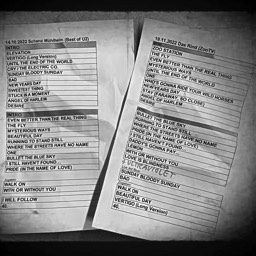 14.10.2022 Scharni Mühlheim (Best of U2)
INTRO
ELEVATION
VERTIGO (Long Version)
UNTIL THE END OF THE WORLD
CRY/THE ELECTRIC CO.
SUNDAY BLOODY SUNDAY
BAD
NEW YEARS DAY
SWEETEST THING
STUCK IN A MOMENT
ANGEL OF HARLEM
DESIRE
INTRO
EVEN BETTER THAN THE REAL THING
THE FLY
MYSTERIOUS WAYS
BEAUTIFUL DAY
RUNNING TO STAND STILL
WHERE THE STREETS HAVE NO NAME
ONE
BULLET THE BLUE SKY
I STILL HAVEN'T FOUND
PRIDE (IN THE NAME OF LOVE)
WALK ON
WITH OR WITHOUT YOU
I WILL FOLLOW
40
18.11.2022 Das Rind (ZooTV)
ZOO STATION
THE FLY
EVEN BETTER THAN THE REAL THING
MYSTERIOUS WAYS
UNTIL THE END OF THE WORLD
ONE
WHO'S GONNA RIDE YOUR WILD HORSES
NEW YEARS DAY
STAY (FARAWAY, SO CLOSE)
ANGEL OF HARLEM
DESIRE
BULLET THE BLUE SKY
RUNNING TO STAND STILL
WHERE THE STREETS HAVE NO NAME
PRIDE (IN THE NAME OF LOVE)
DADDY'S GONNA PAY
LEMON
WITH OR WITHOUT YOU
LOVE IS BLINDNESS
ULTRAVIOLET
SUNDAY BLOODY SUNDAY
BAD
WALK ON
BEAUTIFUL DAY
VERTIGO (Long Version)
40